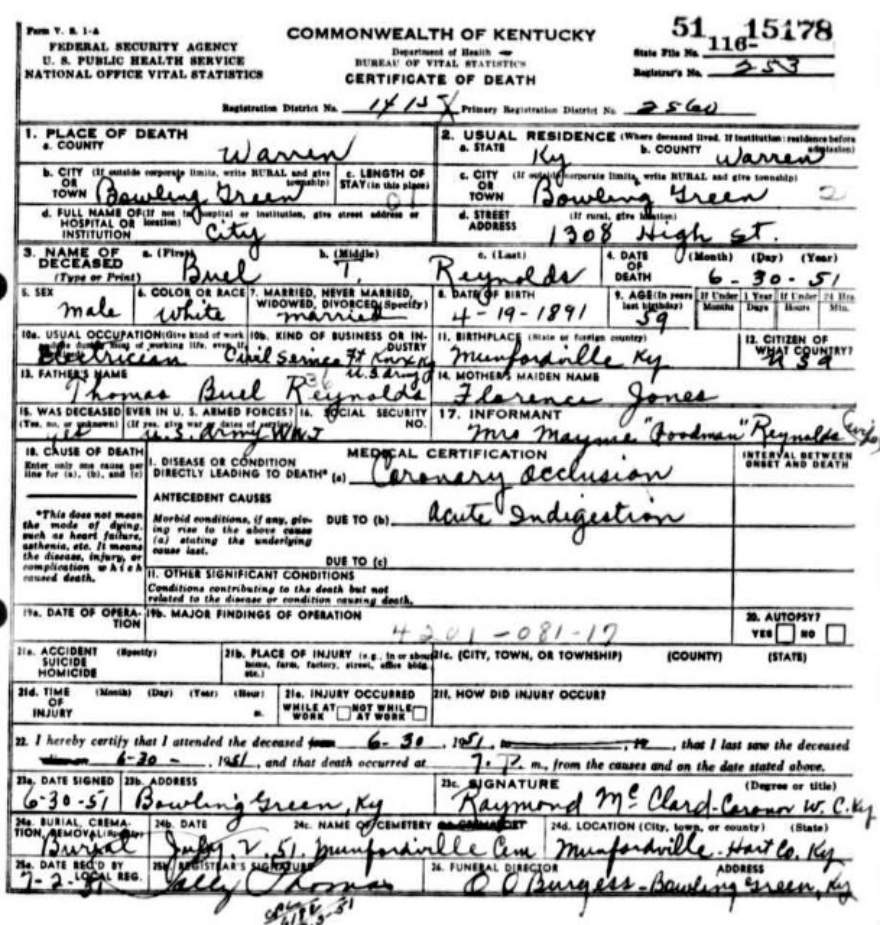 Form V. S. 1-A
FEDERAL SECURITY AGENCY
U. S. PUBLIC HEALTH SERVICE
NATIONAL OFFICE VITAL STATISTICS
COMMONWEALTH OF KENTUCKY
Department of Health
BUREAU OF VITAL STATISTICS
CERTIFICATE OF DEATH
51 15178
State File No. 116-
Registrar's No. 253
Registration District No. 1415 Primary Registration District No. 2560
1. PLACE OF DEATH
a. COUNTY Warren
2. USUAL RESIDENCE (Where deceased lived. If institution: residence before admission)
a. STATE Ky b. COUNTY Warren
b. CITY (If outside corporate limits, write RURAL and give township) OR TOWN Bowling Green
c. LENGTH OF STAY (in this place)
c. CITY (If outside corporate limits, write RURAL and give township) OR TOWN Bowling Green 2
d. FULL NAME OF (If not in hospital or institution, give street address or location) HOSPITAL OR INSTITUTION City
d. STREET ADDRESS (If rural, give location) 1308 High St.
3. NAME OF DECEASED (Type or Print)
a. (First) Buel b. (Middle) T. c. (Last) Reynolds
4. DATE OF DEATH (Month) (Day) (Year) 6-30-51
5. SEX male
6. COLOR OR RACE white
7. MARRIED, NEVER MARRIED, WIDOWED, DIVORCED (Specify) married
8. DATE OF BIRTH 4-19-1891
9. AGE (In years last birthday) 59
If Under 1 Year Months Days
If Under 24 Hrs Hours Min.
10a. USUAL OCCUPATION (Give kind of work done during most of working life, even if Electrician
10b. KIND OF BUSINESS OR INDUSTRY Civil Service Ft Knox Ky U.S. Army
11. BIRTHPLACE (State or foreign country) Munfordville Ky
12. CITIZEN OF WHAT COUNTRY? USA
13. FATHER'S NAME Thomas Buel Reynolds
36
14. MOTHER'S MAIDEN NAME Florence Jones
15. WAS DECEASED EVER IN U. S. ARMED FORCES? (Yes, no, or unknown) (If yes, give war or dates of service) yes U.S. Army WW I
16. SOCIAL SECURITY NO.
17. INFORMANT Mrs Mayme "Goodman" Reynolds
18. CAUSE OF DEATH
Enter only one cause per line for (a), (b), and (c)
*This does not mean the mode of dying, such as heart failure, asthenia, etc. It means the disease, injury, or complication which caused death.
MEDICAL CERTIFICATION
INTERVAL BETWEEN ONSET AND DEATH
I. DISEASE OR CONDITION DIRECTLY LEADING TO DEATH* (a) Coronary occlusion
ANTECEDENT CAUSES
Morbid conditions, if any, giving rise to the above cause (a) stating the underlying cause last.
DUE TO (b) Acute Indigestion
DUE TO (c)
II. OTHER SIGNIFICANT CONDITIONS
Conditions contributing to the death but not related to the disease or condition causing death.
19a. DATE OF OPERATION
19b. MAJOR FINDINGS OF OPERATION
4201-081-17
20. AUTOPSY?
YES NO
21a. ACCIDENT SUICIDE HOMICIDE (Specify)
21b. PLACE OF INJURY (e.g., in or about home, farm, factory, street, office bldg., etc.)
21c. (CITY, TOWN, OR TOWNSHIP) (COUNTY) (STATE)
21d. TIME OF INJURY (Month) (Day) (Year) (Hour) m.
21e. INJURY OCCURRED WHILE AT WORK NOT WHILE AT WORK
21f. HOW DID INJURY OCCUR?
22. I hereby certify that I attended the deceased from 6-30, 1951, to , 19 , that I last saw the deceased
6-30-, 1951, and that death occurred at 7. P. m., from the causes and on the date stated above.
23a. DATE SIGNED 6-30-51
23b. ADDRESS Bowling Green, Ky
23c. SIGNATURE (Degree or title) Raymond McClard-Coronor W. C. Ky
24a. BURIAL, CREMATION, REMOVAL Burial
24b. DATE July 2, 51.
24c. NAME OF CEMETERY OR CREMATORY Munfordville Cem
24d. LOCATION (City, town, or county) (State) Munfordville-Hart Co. Ky
25a. DATE REC'D BY LOCAL REG. 7-2-51
25b. REGISTRAR'S SIGNATURE Sally Thomas
26. FUNERAL DIRECTOR ADDRESS O O Burgess-Bowling Green, Ky